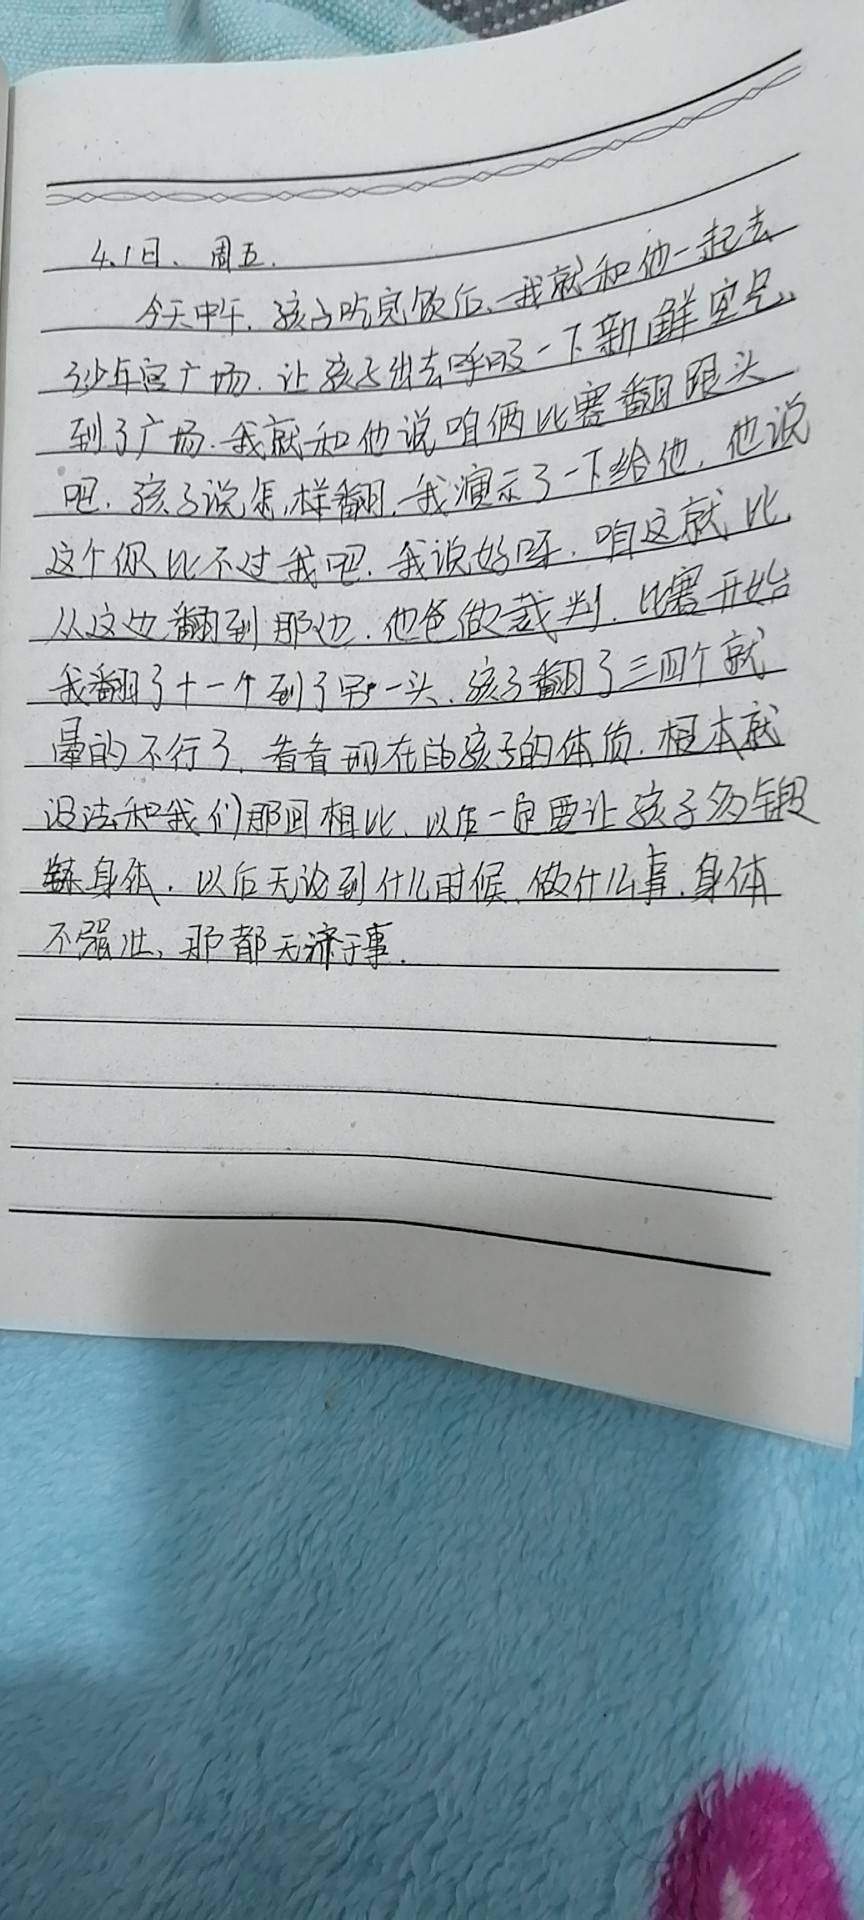 4.1日、周五.
今天中午.孩子吃完饭后、我就和他一起去
了少年宫广场.让孩子出去呼吸一下新鲜空气、
到了广场.我就和他说咱俩比赛翻跟头
吧.孩子说怎样翻.我演示了一下给他.他说
这个你比不过我吧.我说好呀.咱这就比.
从这边翻到那边.他爸做裁判.比赛开始
我翻了十一个到了另一头.孩子翻了三四个就
晕的不行了.看看现在的孩子的体质.根本就
没法和我们那回相比、以后一定要让孩子多锻
炼身体.以后无论到什么时候、做什么事.身体
不强壮、那都无济于事.